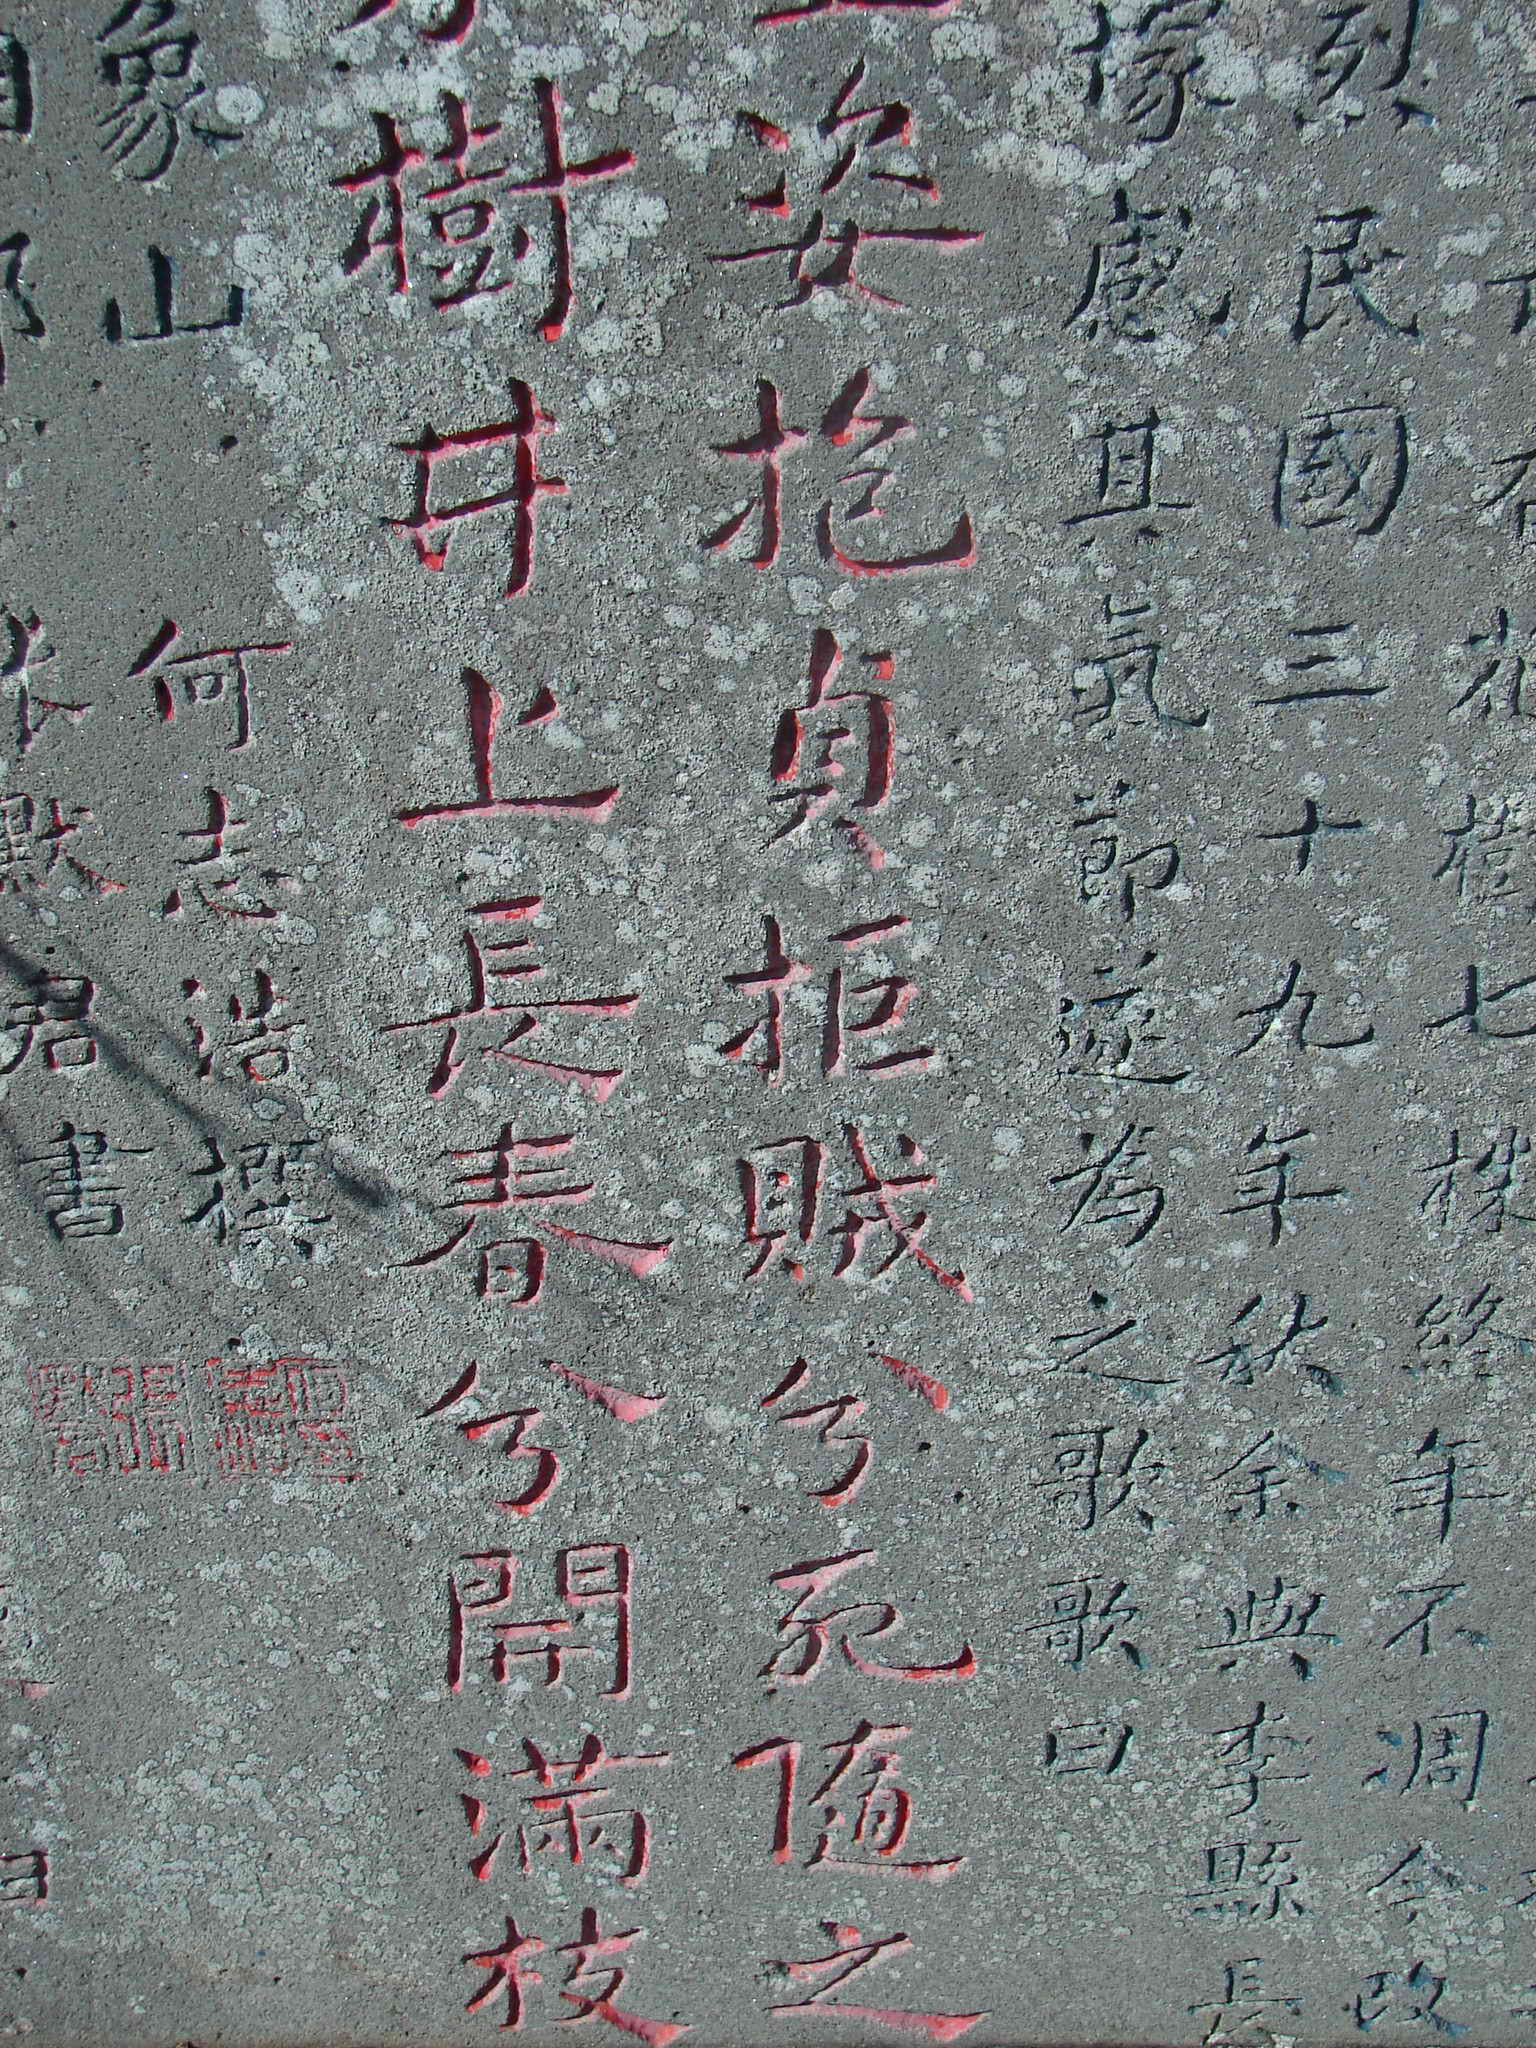 有花七年不凋今改
烈民國三十九年秋余與李縣長
像感其氣節遂為之歌歌曰
姿抱貞拒賊兮死隨之
樹井上長春兮開滿枝
象山 何志浩撰
默君書